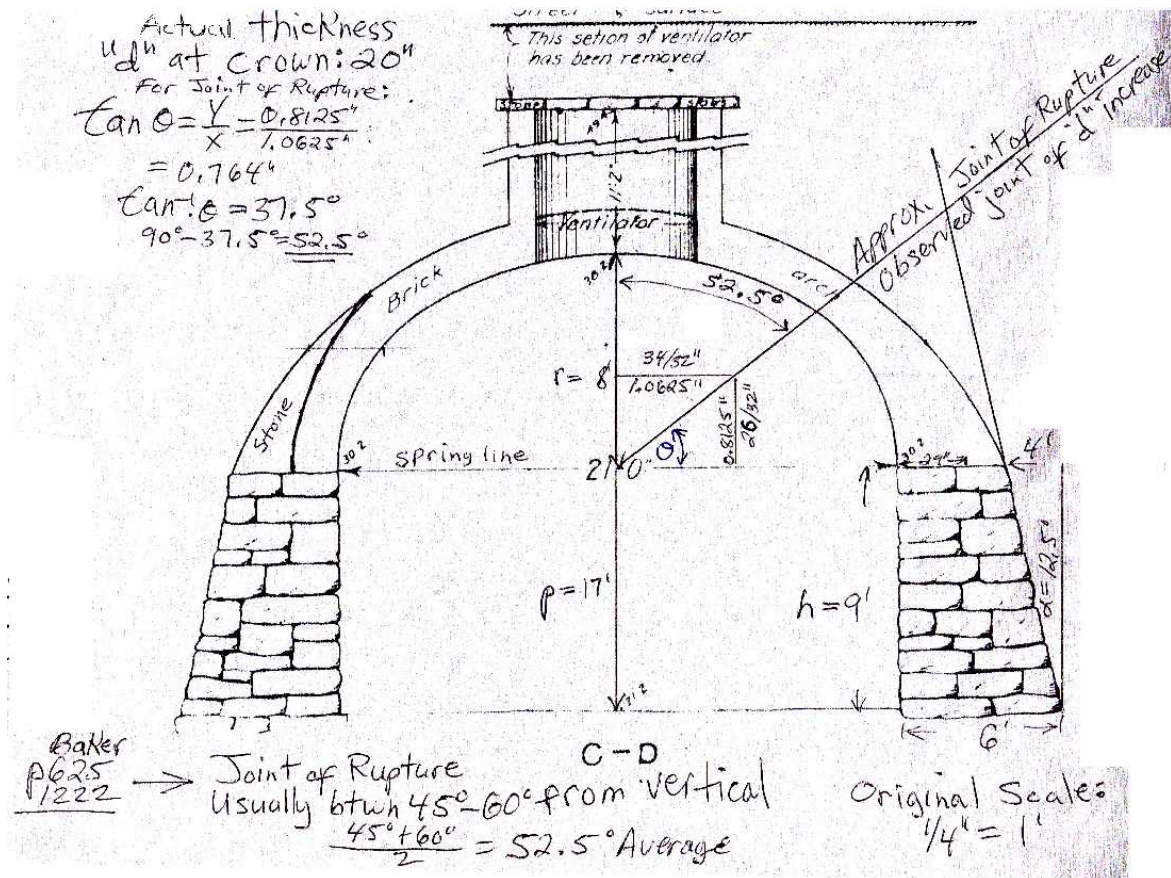 Actual thickness
"d" at crown: 20"
For Joint of Rupture:
tan θ = Y/X = 0.8125"/1.0625"
= 0.764"
tan⁻¹ θ = 37.5°
90° - 37.5° = 52.5°
This setion of ventilator
has been removed.
Stone
11'2"
Ventilator
Brick
arch
Stone
52.5°
Approx. Joint of Rupture
Observed joint of "d" increase
r = 8'
34/32"
1.0625"
0.8125"
26/32"
θ
30.2
30.2
spring line
21' 0"
29"
4'
p = 17'
h = 9'
α = 12.5°
21.2
6'
C-D
Baker
p625
1222
Joint of Rupture
Usually btwn 45°-60° from vertical
45° + 60°/2 = 52.5° Average
Original Scale:
1/4" = 1'